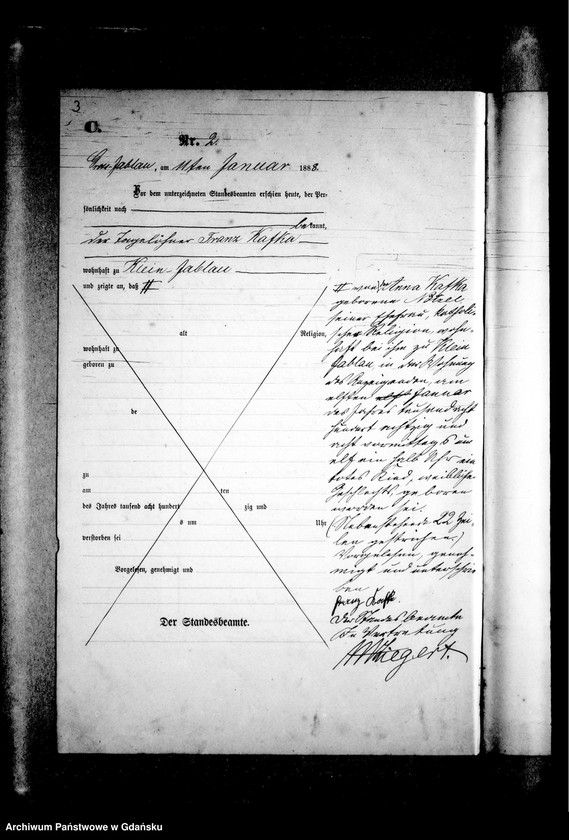 3
C.
Nr. 2.
Gross-Jablau, am 11ten Januar 1888.
Vor dem unterzeichneten Standesbeamten erschien heute, der Per-
sönlichkeit nach
bekannt,
der Tagelöhner Franz Kafka
wohnhaft zu Klein-Jablau
und zeigte an, daß #
alt Religion,
wohnhaft zu
geboren zu
de
zu
am ten
des Jahres tausend acht hundert zig und
s um Uhr
verstorben sei
Vorgelesen, genehmigt und
Der Standesbeamte.
# von der Anna Kafka
geborene
seiner Ehefrau, katholi-
scher Religion, wohn-
haft bei ihm zu Klein
Jablau, in der Wohnung
des Anzeigenden, am
elften Januar
des Jahres tausend acht
hundert achtzig und
acht vormittags um
elf ein halb Uhr ein
totes Kind, weiblichen
Geschlechts, geboren
worden sei.
(Nebenstehende 22 Zei-
len gestrichen)
Vorgelesen, geneh-
migt und unterschrie
ben
Franz Kafka.
Der Standesbeamte
In Vertretung
Archiwum Państwowe w Gdańsku